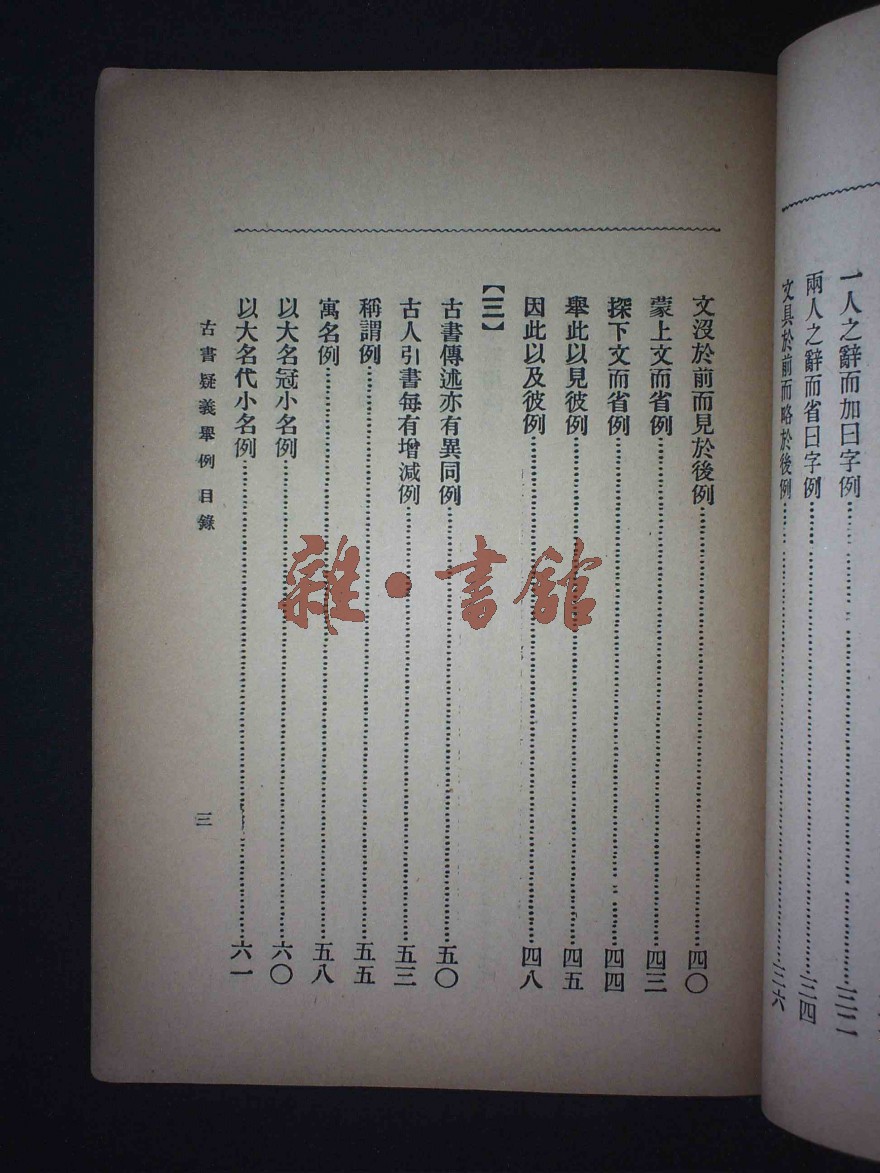 一人之辭而加曰字例……三二
兩人之辭而省曰字例……三四
文具於前而略於後例……三六
文沒於前而見於後例……四〇
蒙上文而省例……四三
探下文而省例……四四
舉此以見彼例……四五
因此以及彼例……四八
【三】
古書傳述亦有異同例……五〇
古人引書每有增減例……五三
稱謂例……五五
寓名例……五八
以大名冠小名例……六〇
以大名代小名例……六一
古書疑義舉例 目錄
三
雜·書館